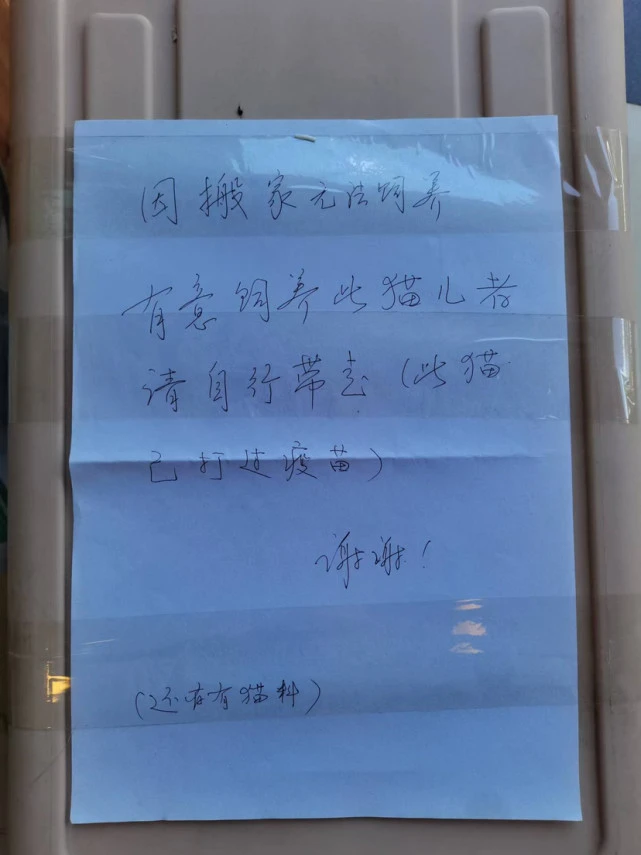 因搬家无法饲养
有意饲养此猫儿者
请自行带走（此猫
已打过疫苗）
谢谢！
（还存有猫料）